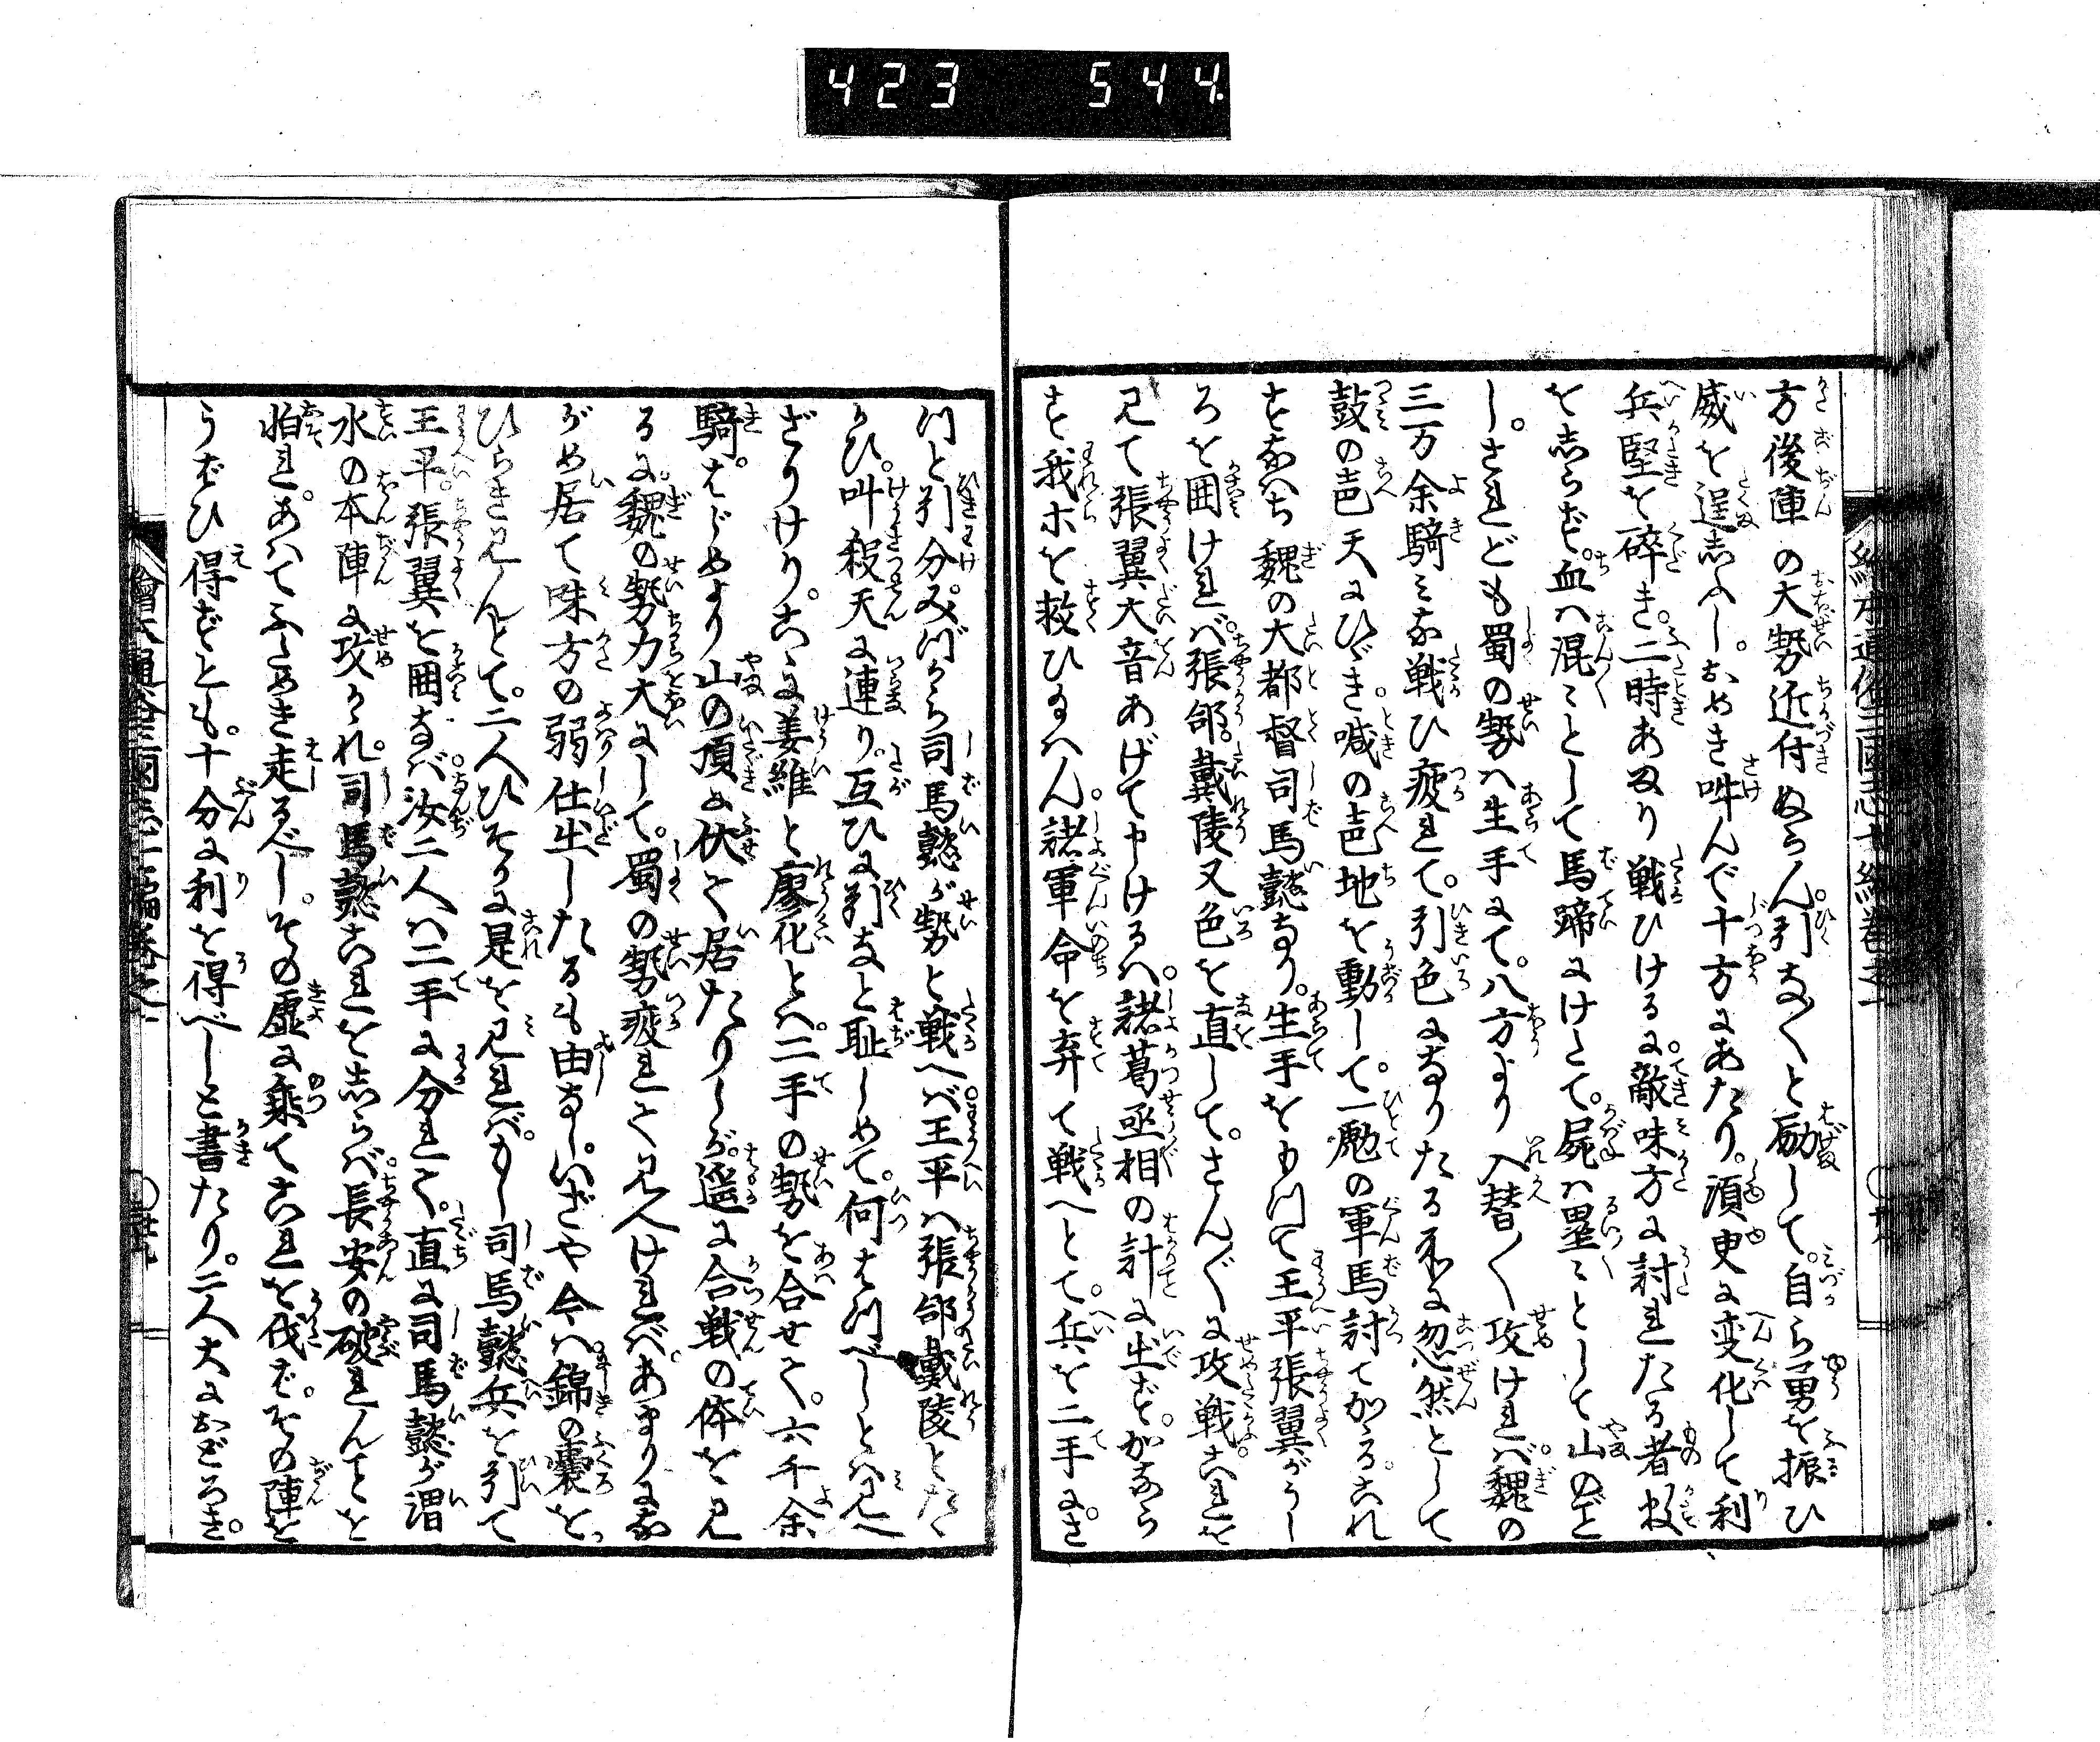 423 544
方後陣の大勢近付ぬらん。引な〳〵と励して。自ら勇を振ひ
威を逞しふし。おめき叫んで十方にあたり。須臾に変化して利
兵堅を砕き。二時あまり戦ひける に。敵味方に討れたる者数
をしらず。血は混〻として馬蹄にけたて。屍は塁〻として山のご
し。されども蜀の勢は生手にて。八方より入替〳〵攻ければ。魏の
三万余騎みな戦ひ疲れて。引色になりたる所に忽然として
鼓の声天にひゞき。喊の声地を動して。一彪の軍馬討てかゝる。これ
すなはち魏の大都督司馬懿なり。生手をもつて王平張翼がうし
ろを囲ければ。張郃。戴陵又色を直して。さん〴〵に攻戦ふ。これを
見て張翼大音あげて申けるは。諸葛丞相の計に出ず。かなら
ず我ホを救ひ給はん。諸軍命を弃て戦へとて。兵を二手にさ
つと引分。みづから司馬懿が勢と戦へば。王平は張郃戴陵とたゝ
かひ。叫殺天に連り。互ひに引なと耻しめて。何はつべしとは見へ
ざりけり。こゝに姜維と廖化とは。二手の勢を合せて。六千余
騎。はじめより山の頂に伏て居たりしが。遥に合戦の体を見
るに。魏の勢力大にして。蜀の勢疲れて見へければ。あまりにな
がめ居て味方の弱仕出したるも由なし。いざや今は錦の嚢を
ひらき見んとて。二人ひそかに是を見れば。もし司馬懿兵を引て
王平。張翼を囲なば。汝二人は二手に分れて。直に司馬懿が渭
水の本陣に攻かゝれ。司馬懿これをしらば。長安の破れんことを
怕れ。あはてふためき走るべし。その虚に乗てこれを伐ば。その陣を
うばひ得ずとも。十分に利を得べしと書たり。二人大におどろき。